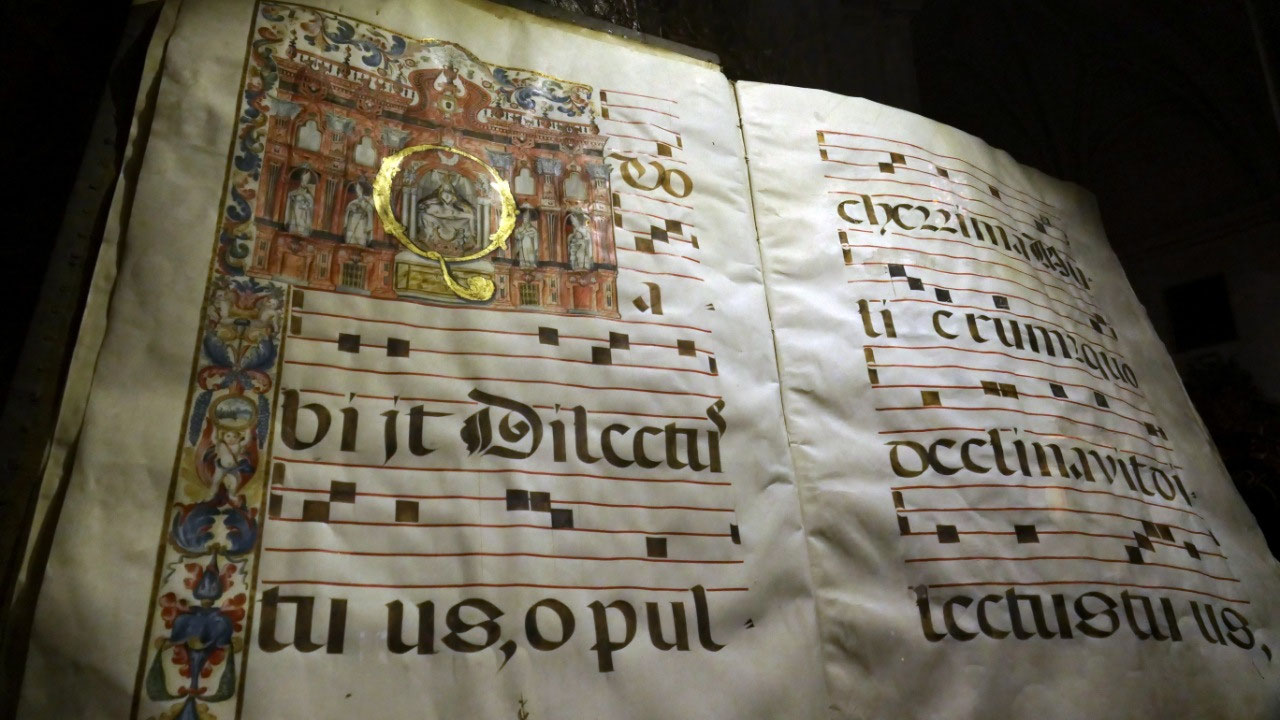 QVo
a
bi jt Dilectus
tu us, o pul
cherrima Mu
li erum? quo
declinavit di
lectus tu us,